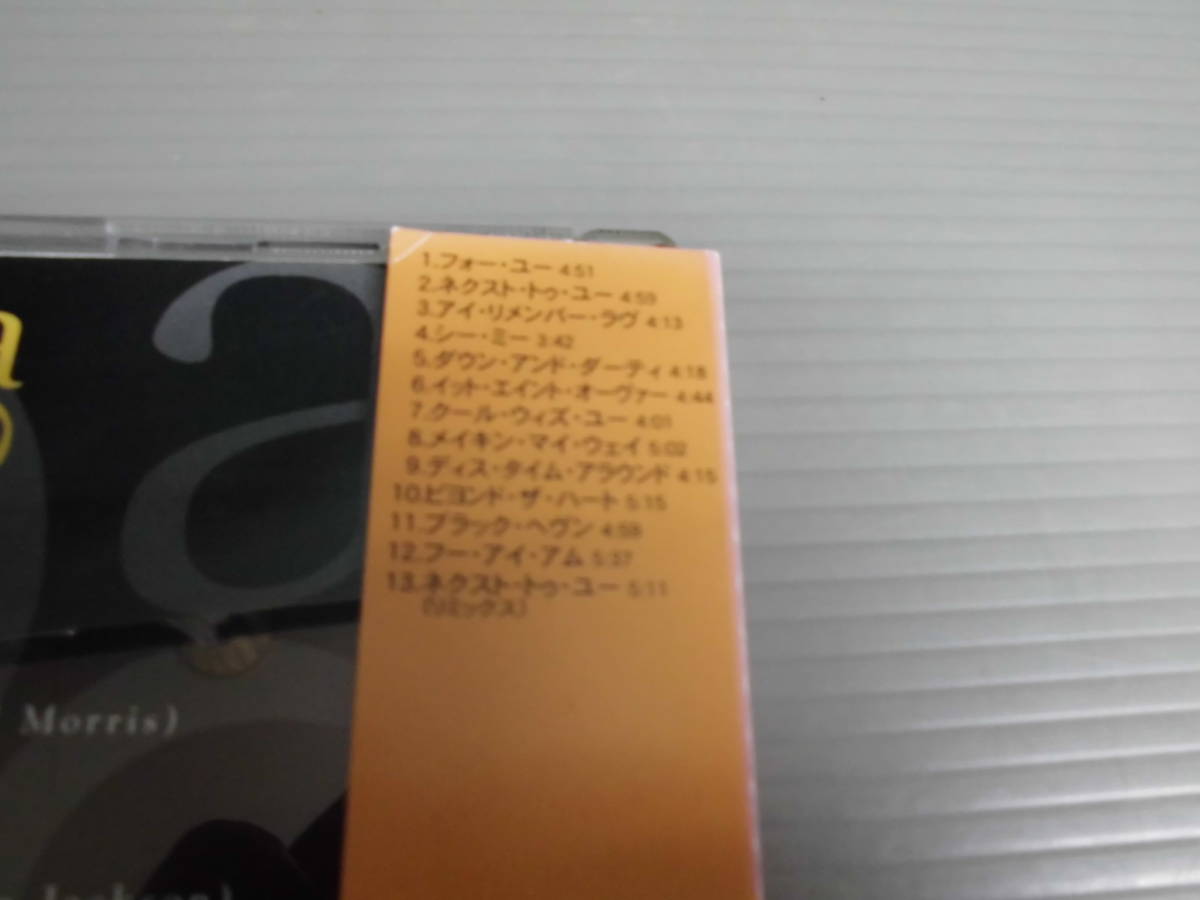 1.フォー・ユー 4:51
2.ネクスト・トゥ・ユー 4:59
3.アイ・リメンバー・ラヴ 4:13
4.シー・ミー 3:42
5.ダウン・アンド・ダーティ 4:18
6.イット・エイント・オーヴァー 4:44
7.クール・ウィズ・ユー 4:01
8.メイキン・マイ・ウェイ 5:02
9.ディス・タイム・アラウンド 4:15
10.ビヨンド・ザ・ハート 5:15
11.ブラック・ヘヴン 4:59
12.フー・アイ・アム 5:37
13.ネクスト・トゥ・ユー 5:11
(リミックス)
a
a
Morris)
Jackson)